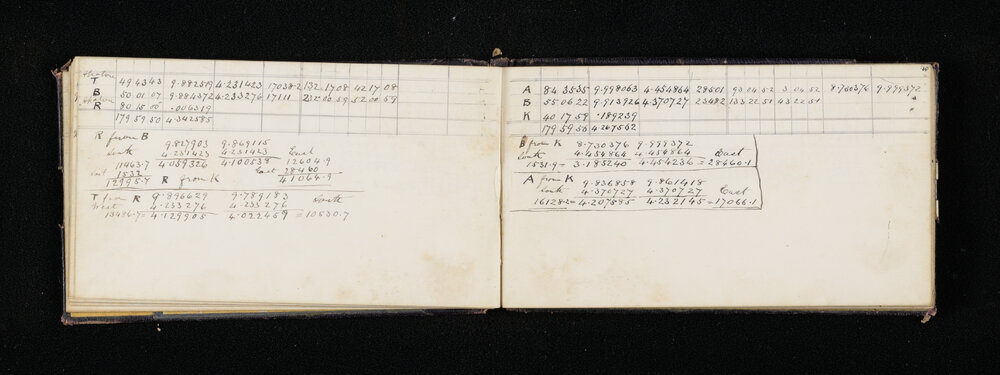 Station
T 49 43 43 9.882519 4.231423 17038.2 132 17 08 42 17 08
B 50 01 07 9.884372 4.233276 17111 232 00 59 52 00 59
R 80 15 00 .006319
179 59 50 4.342585
R from B
9.827903 9.869115
South 4.231423 4.231423 East
11463.7 4.059326 4.100538 12604.9
1532 East 28460
12995.7 R from K 41064.9
T from R 9.896629 9.789183 South
West 4.233276 4.233276
13486.7 = 4.129905 4.022459 = 10530.7
A 84 35 35 9.998063 4.454864 28501 93 04 52 3 04 52 8.730376 9.999372
B 55 06 22 9.913926 4.370727 23482 133 22 51 43 22 51
K 40 17 59 .189239
179 59 56 4.267562
B from K 8.730376 9.999372
South 4.454864 4.454864 East
1531.9 = 3.185240 4.454236 = 28460.1
A from K 9.836858 9.861418
South 4.370727 4.370727 East
16128.2 = 4.207585 4.232145 = 17066.1